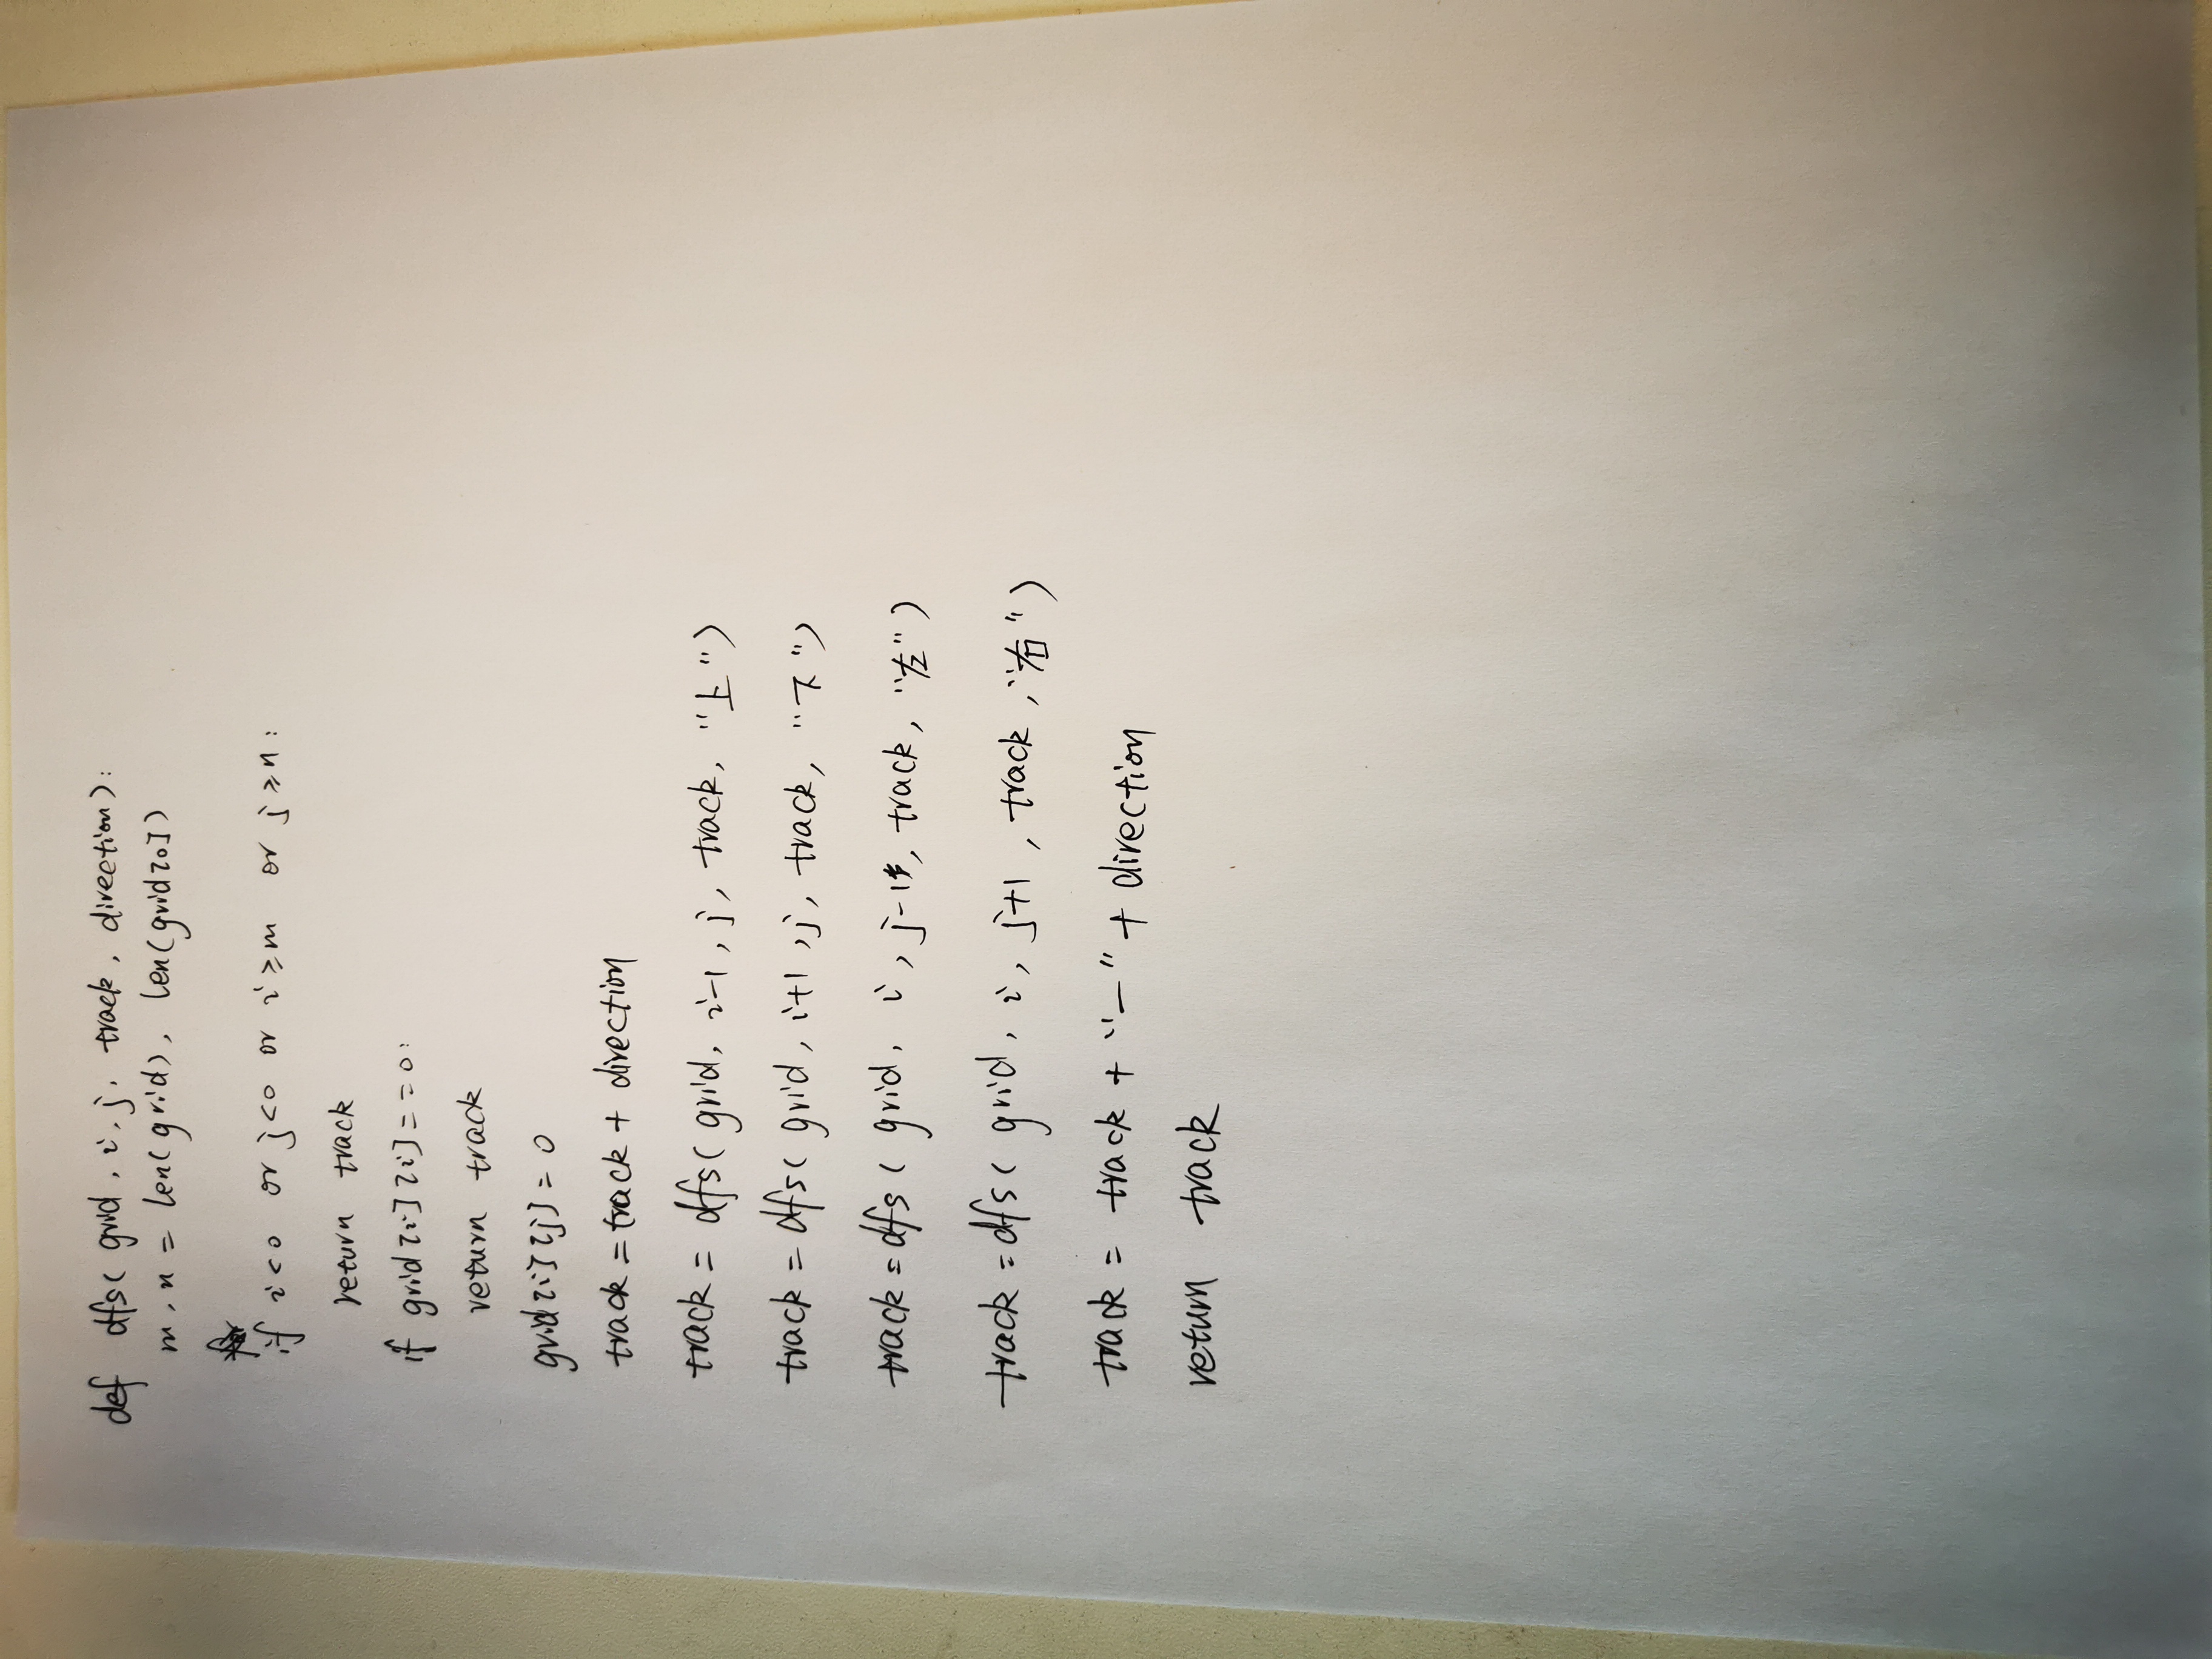 def dfs( grid, i, j, track, direction):
m, n = len(grid), len(grid[0])
if i<0 or j<0 or i≥m or j≥n:
return track
if grid[i][i]==0:
return track
grid[i][j] = 0
track = track + direction
track = dfs( grid, i-1, j, track, "上")
track = dfs( grid, i+1, j, track, "下")
track = dfs( grid, i, j-1, track, "左")
track = dfs( grid, i, j+1, track, "右")
track = track + "—" + direction
return track